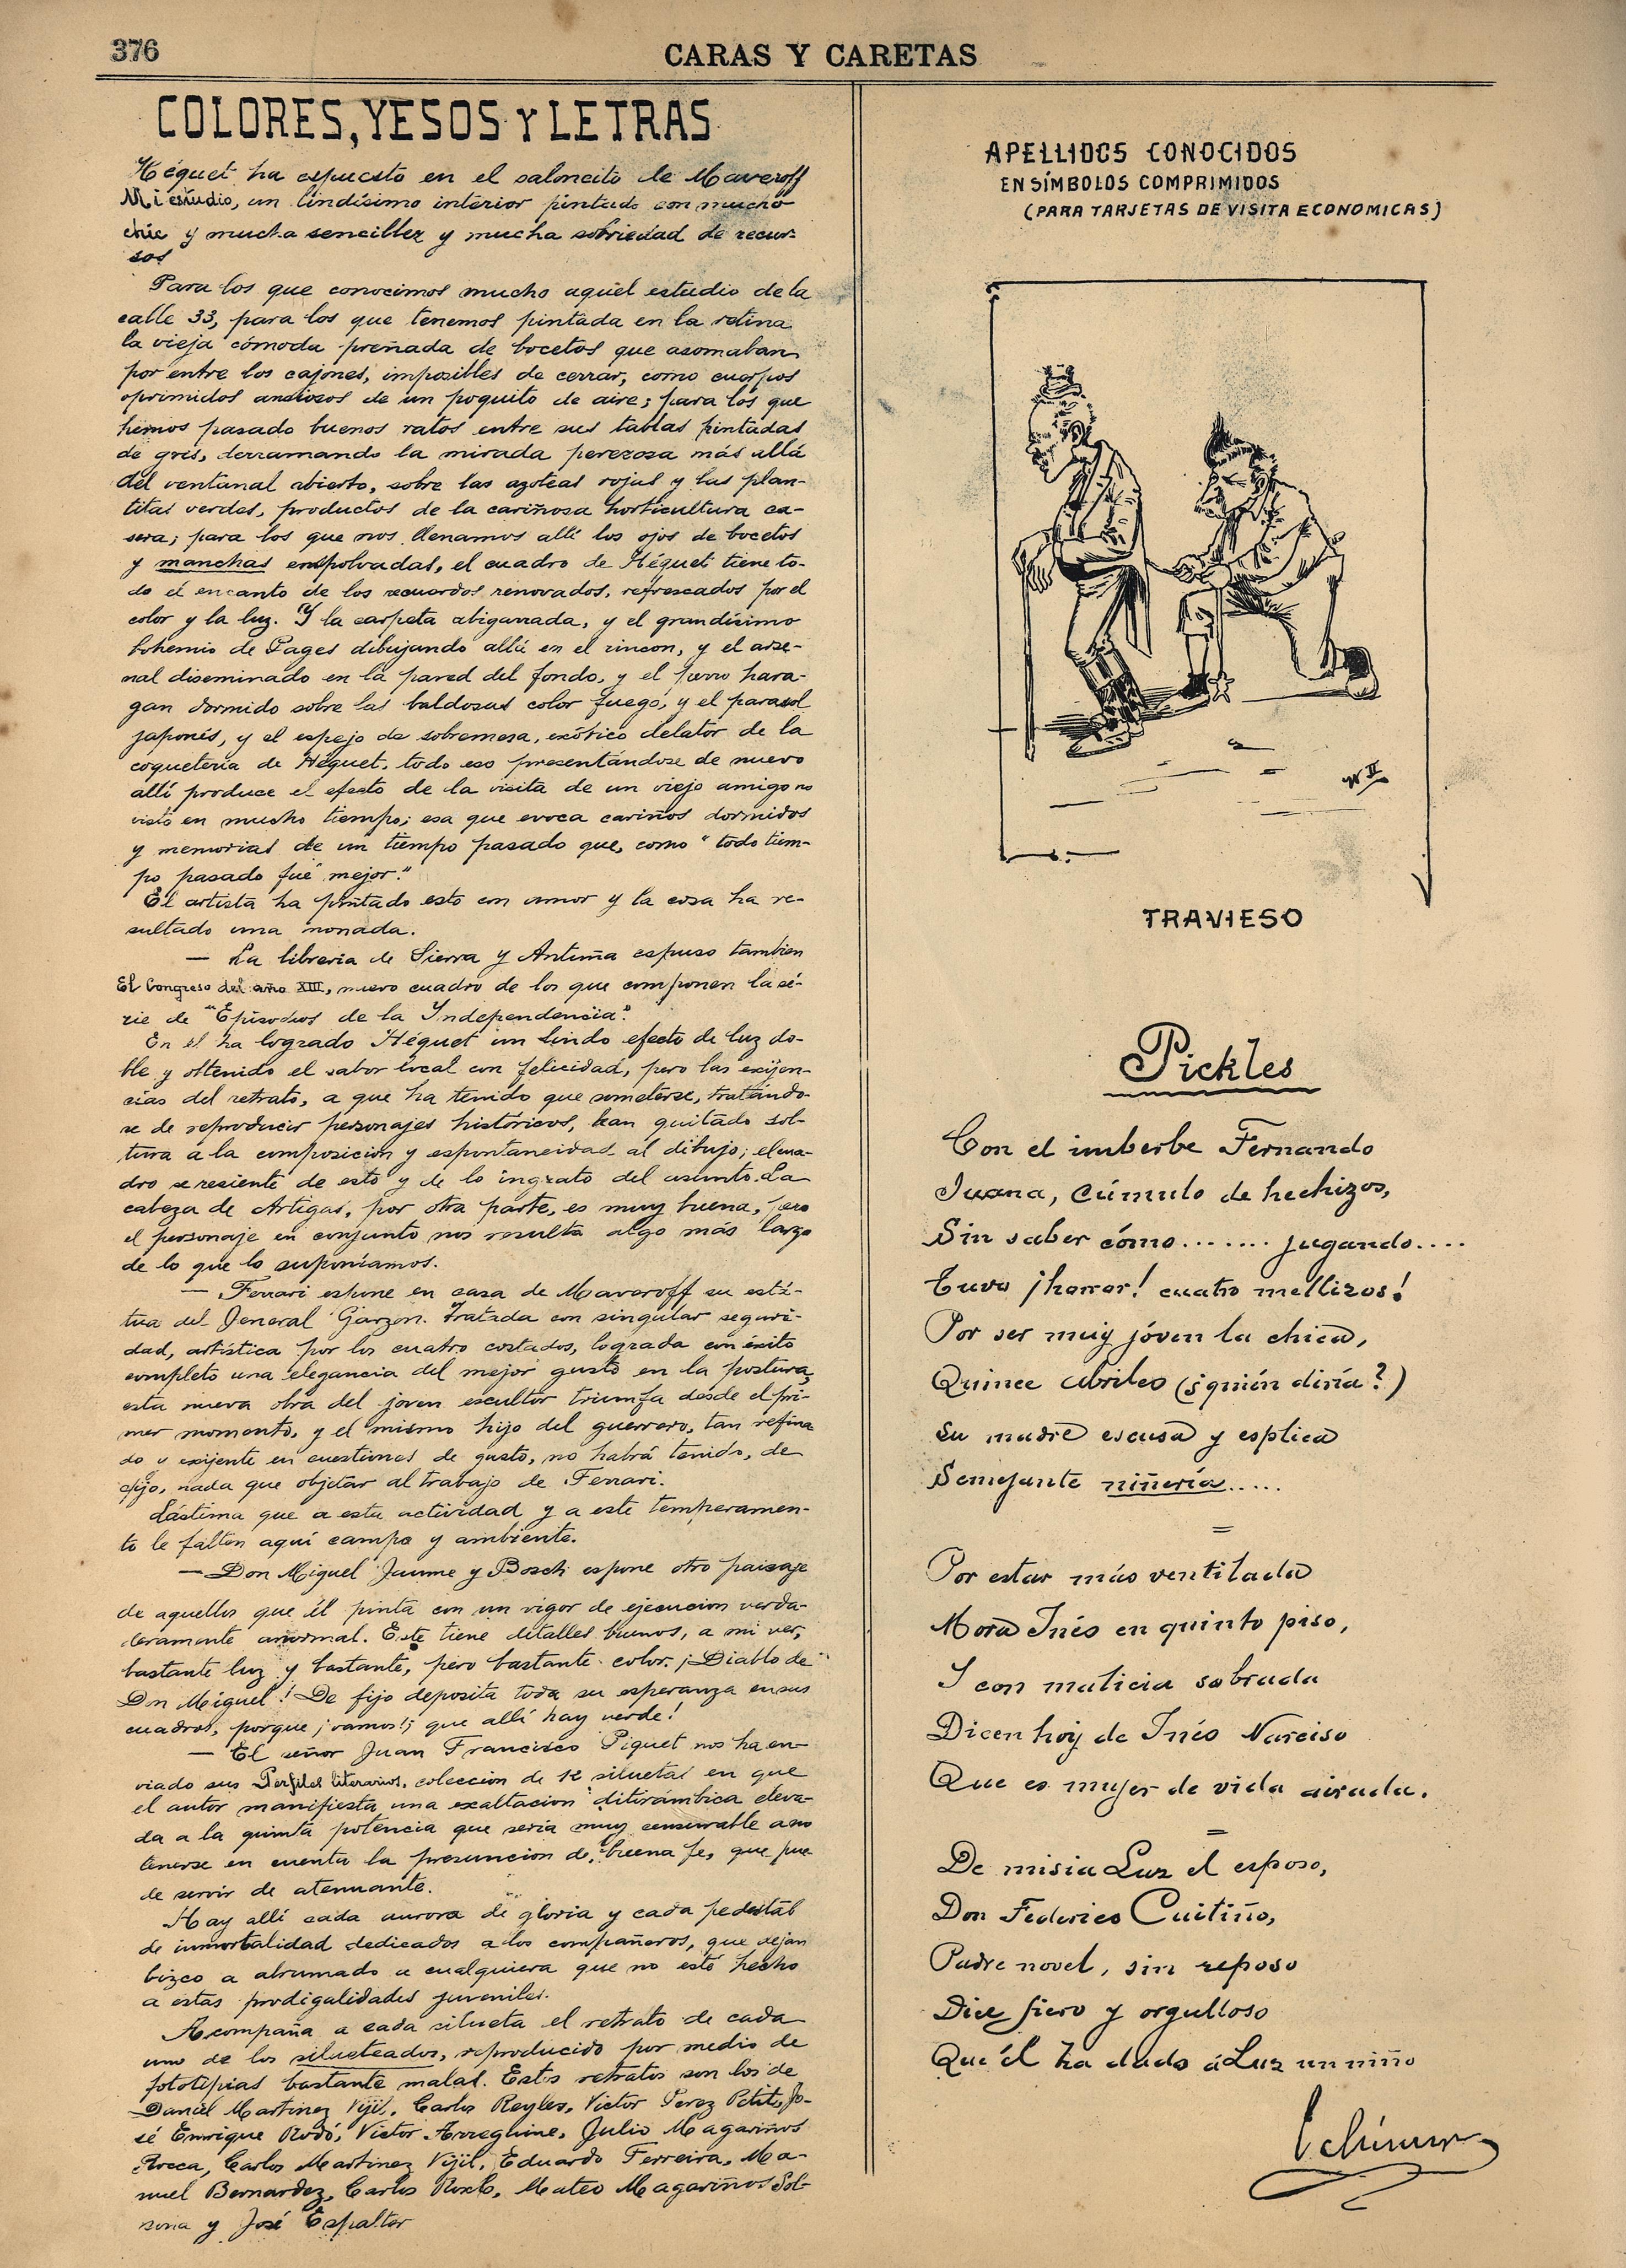 376
CARAS Y CARETAS
COLORES, YESOS Y LETRAS
Héquet ha espuesto en el saloncito de Maveroff
Mi estudio, un lindísimo interior pintado con mucho
chic y mucha sencillez y mucha sobriedad de recur-
sos
Para los que conocimos mucho aquel estudio de la
calle 33, para los que tenemos pintada en la retina
la vieja cómoda preñada de bocetos que asomaban
por entre los cajones, imposibles de cerrar, como cuerpos
oprimidos ansiosos de un poquito de aire; para los que
hemos pasado buenos ratos entre sus tablas pintadas
de gris, derramando la mirada perezosa más allá
del ventanal abierto, sobre las azoteas rojas y las plan-
titas verdes, productos de la cariñosa horticultura ca-
sera; para los que nos llenamos allí los ojos de bocetos
y manchas empolvadas, el cuadro de Héquet tiene to-
do el encanto de los recuerdos renovados, refrescados por el
color y la luz. Y la carpeta abigarrada, y el grandísimo
bohemio de Pages dibujando allá en el rincon, y el arse-
nal diseminado en la pared del fondo, y el perro hara-
gan dormido sobre las baldosas color fuego, y el parasol
japonés, y el espejo de sobremesa, exótico delator de la
coquetería de Héquet, todo eso presentándose de nuevo
allí produce el efecto de la visita de un viejo amigo no
visto en mucho tiempo; esa que evoca cariños dormidos
y memorias de un tiempo pasado que, como "todo tiem-
po pasado fué mejor."
El artista ha pintado esto con amor y la cosa ha re-
sultado una monada.
— La libreria de Sierra y Antuña espuso tambien
El Congreso del año XIII, nuevo cuadro de los que componen la sé-
rie de "Episodios de la Independencia".
En él ha logrado Héquet un lindo efecto de luz do-
ble y obtenido el sabor local con felicidad, pero las exijen-
cias del retrato, a que ha tenido que someterse, tratándo-
se de reproducir personajes históricos, han quitado sol-
tura a la composición y espontaneidad al dibujo; el cua-
dro se resiente de esto y de lo ingrato del asunto. La
cabeza de Artigas, por otra parte, es muy buena, pero
el personaje en conjunto nos resulta algo más largo
de lo que lo suponíamos.
— Ferrari espone en casa de Maveroff su está-
tua del Jeneral Garzon. Tratada con singular seguri-
dad, artística por los cuatro costados, lograda con éxito
completo una elegancia del mejor gusto en la postura,
esta nueva obra del joven escultor triunfa desde el pri-
mer momento, y el mismo hijo del guerrero, tan refina
do y exijente en cuestiones de gusto, no habrá tenido, de
fijo, nada que objetar al trabajo de Ferrari.
Lástima que a esta actividad y a este temperamen-
to le falten aquí campo y ambiente.
— Don Miguel Jaume y Bosch espone otro paisaje
de aquellos que él pinta con un vigor de ejecucion verda-
deramente anormal. Este tiene detalles buenos, a mi ver,
bastante luz y bastante, pero bastante color. ¡Diablo de
Dn Miguel! De fijo deposita toda su esperanza en sus
cuadros, porque ¡vamos!; que allí hay verde!
— El señor Juan Francisco Piquet nos ha en-
viado sus Perfiles literarios, coleccion de 12 siluetas en que
el autor manifiesta una exaltacion ditirámbica eleva-
da a la quinta potencia que seria muy censurable a no
tenerse en cuenta la presuncion de buena fe, que pue
de servir de atenuante.
Hay allí cada aurora de gloria y cada pedestal
de inmortalidad dedicados a los compañeros, que dejan
bizco a abrumado a cualquiera que no esté hecho
a estas prodigalidades juveniles.
Acompaña a cada silueta el retrato de cada
uno de los silueteados, reproducido por medio de
fototipias bastante malas. Estos retratos son los de
Daniel Martinez Vijil, Carlos Reyles, Victor Perez Petit, Jo-
sé Enrique Rodó, Victor Arreguine, Julio Magariños
Rocca, Carlos Martinez Vijil, Eduardo Ferreira, Ma-
nuel Bernardez, Carlos Roxlo, Mateo Magariños Sol-
sona y José Espalter
APELLIDOS CONOCIDOS
EN SÍMBOLOS COMPRIMIDOS
(PARA TARJETAS DE VISITA ECONOMICAS)
TRAVIESO
Pickles
Con el imberbe Fernando
Juana, cúmulo de hechizos,
Sin saber cómo....... jugando....
Tuvo ¡horror! cuatro mellizos!
Por ser muy jóven la chica,
Quince abriles (¿quién diría?)
Su madre escusa y esplica
Semejante niñería.....
Por estar más ventilada
Mora Inés en quinto piso,
I con malicia sobrada
Dicen hoy de Inés Narciso
Que es mujer de vida airada.
De misia Luz el esposo,
Don Federico Cuitiño,
Padre novel, sin reposo
Dice fiero y orgulloso
Que él ha dado á Luz un niño